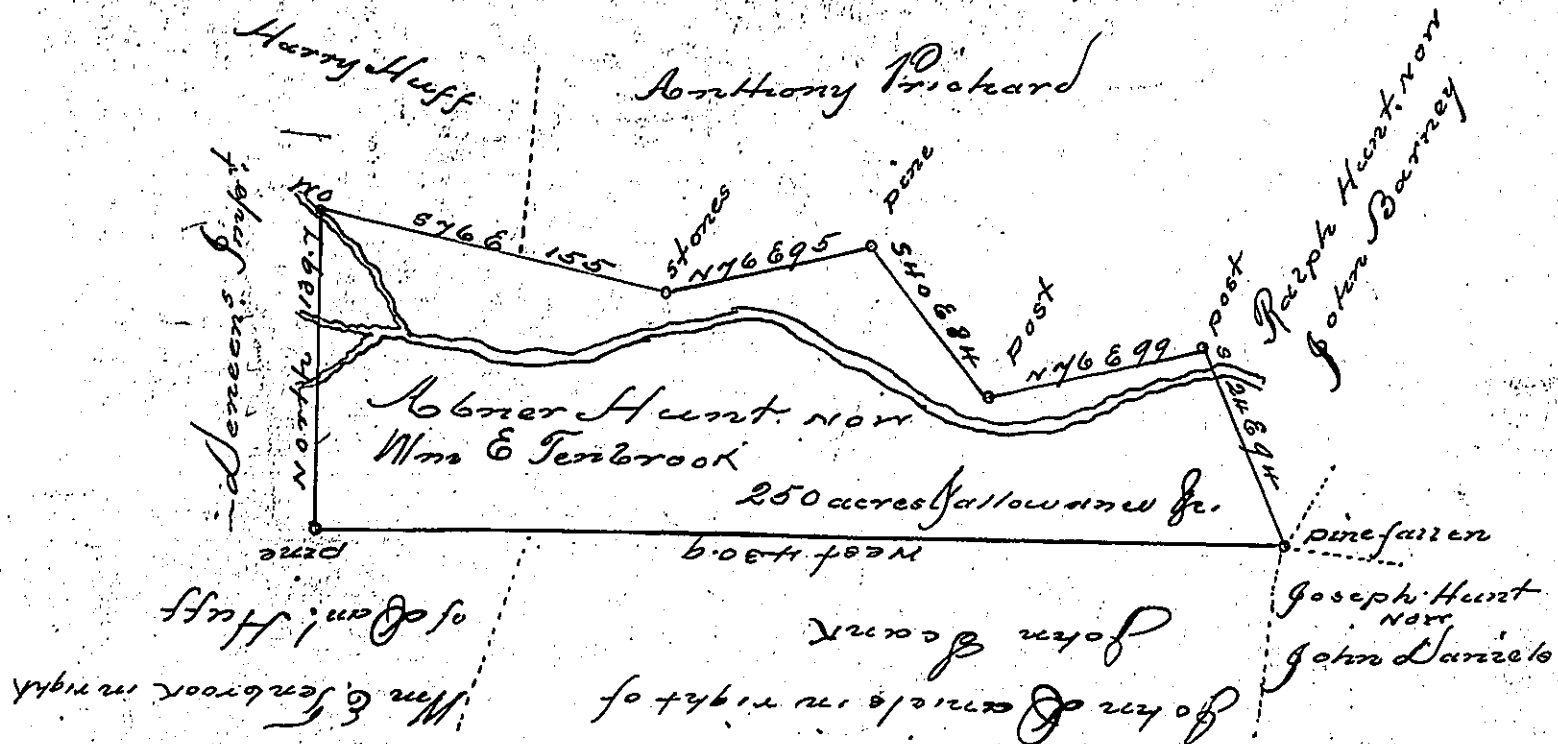 Harry Huff
Anthony Prichard
Ralph Hunt, now
John Barney
WO
S76E 155
stones
N76E95
pine
S40E84
post
N76E99
post
S24E94
North 139.7
Abner Hunt. now
Wm E Tenbrook
250 acres & allowance &c.
West 430.9
pine
pine fallen
Joseph Hunt
now
John Daniels
John Daniels in right of
John
Wm E. Tenbrook in right
of Dan'l Huff
right